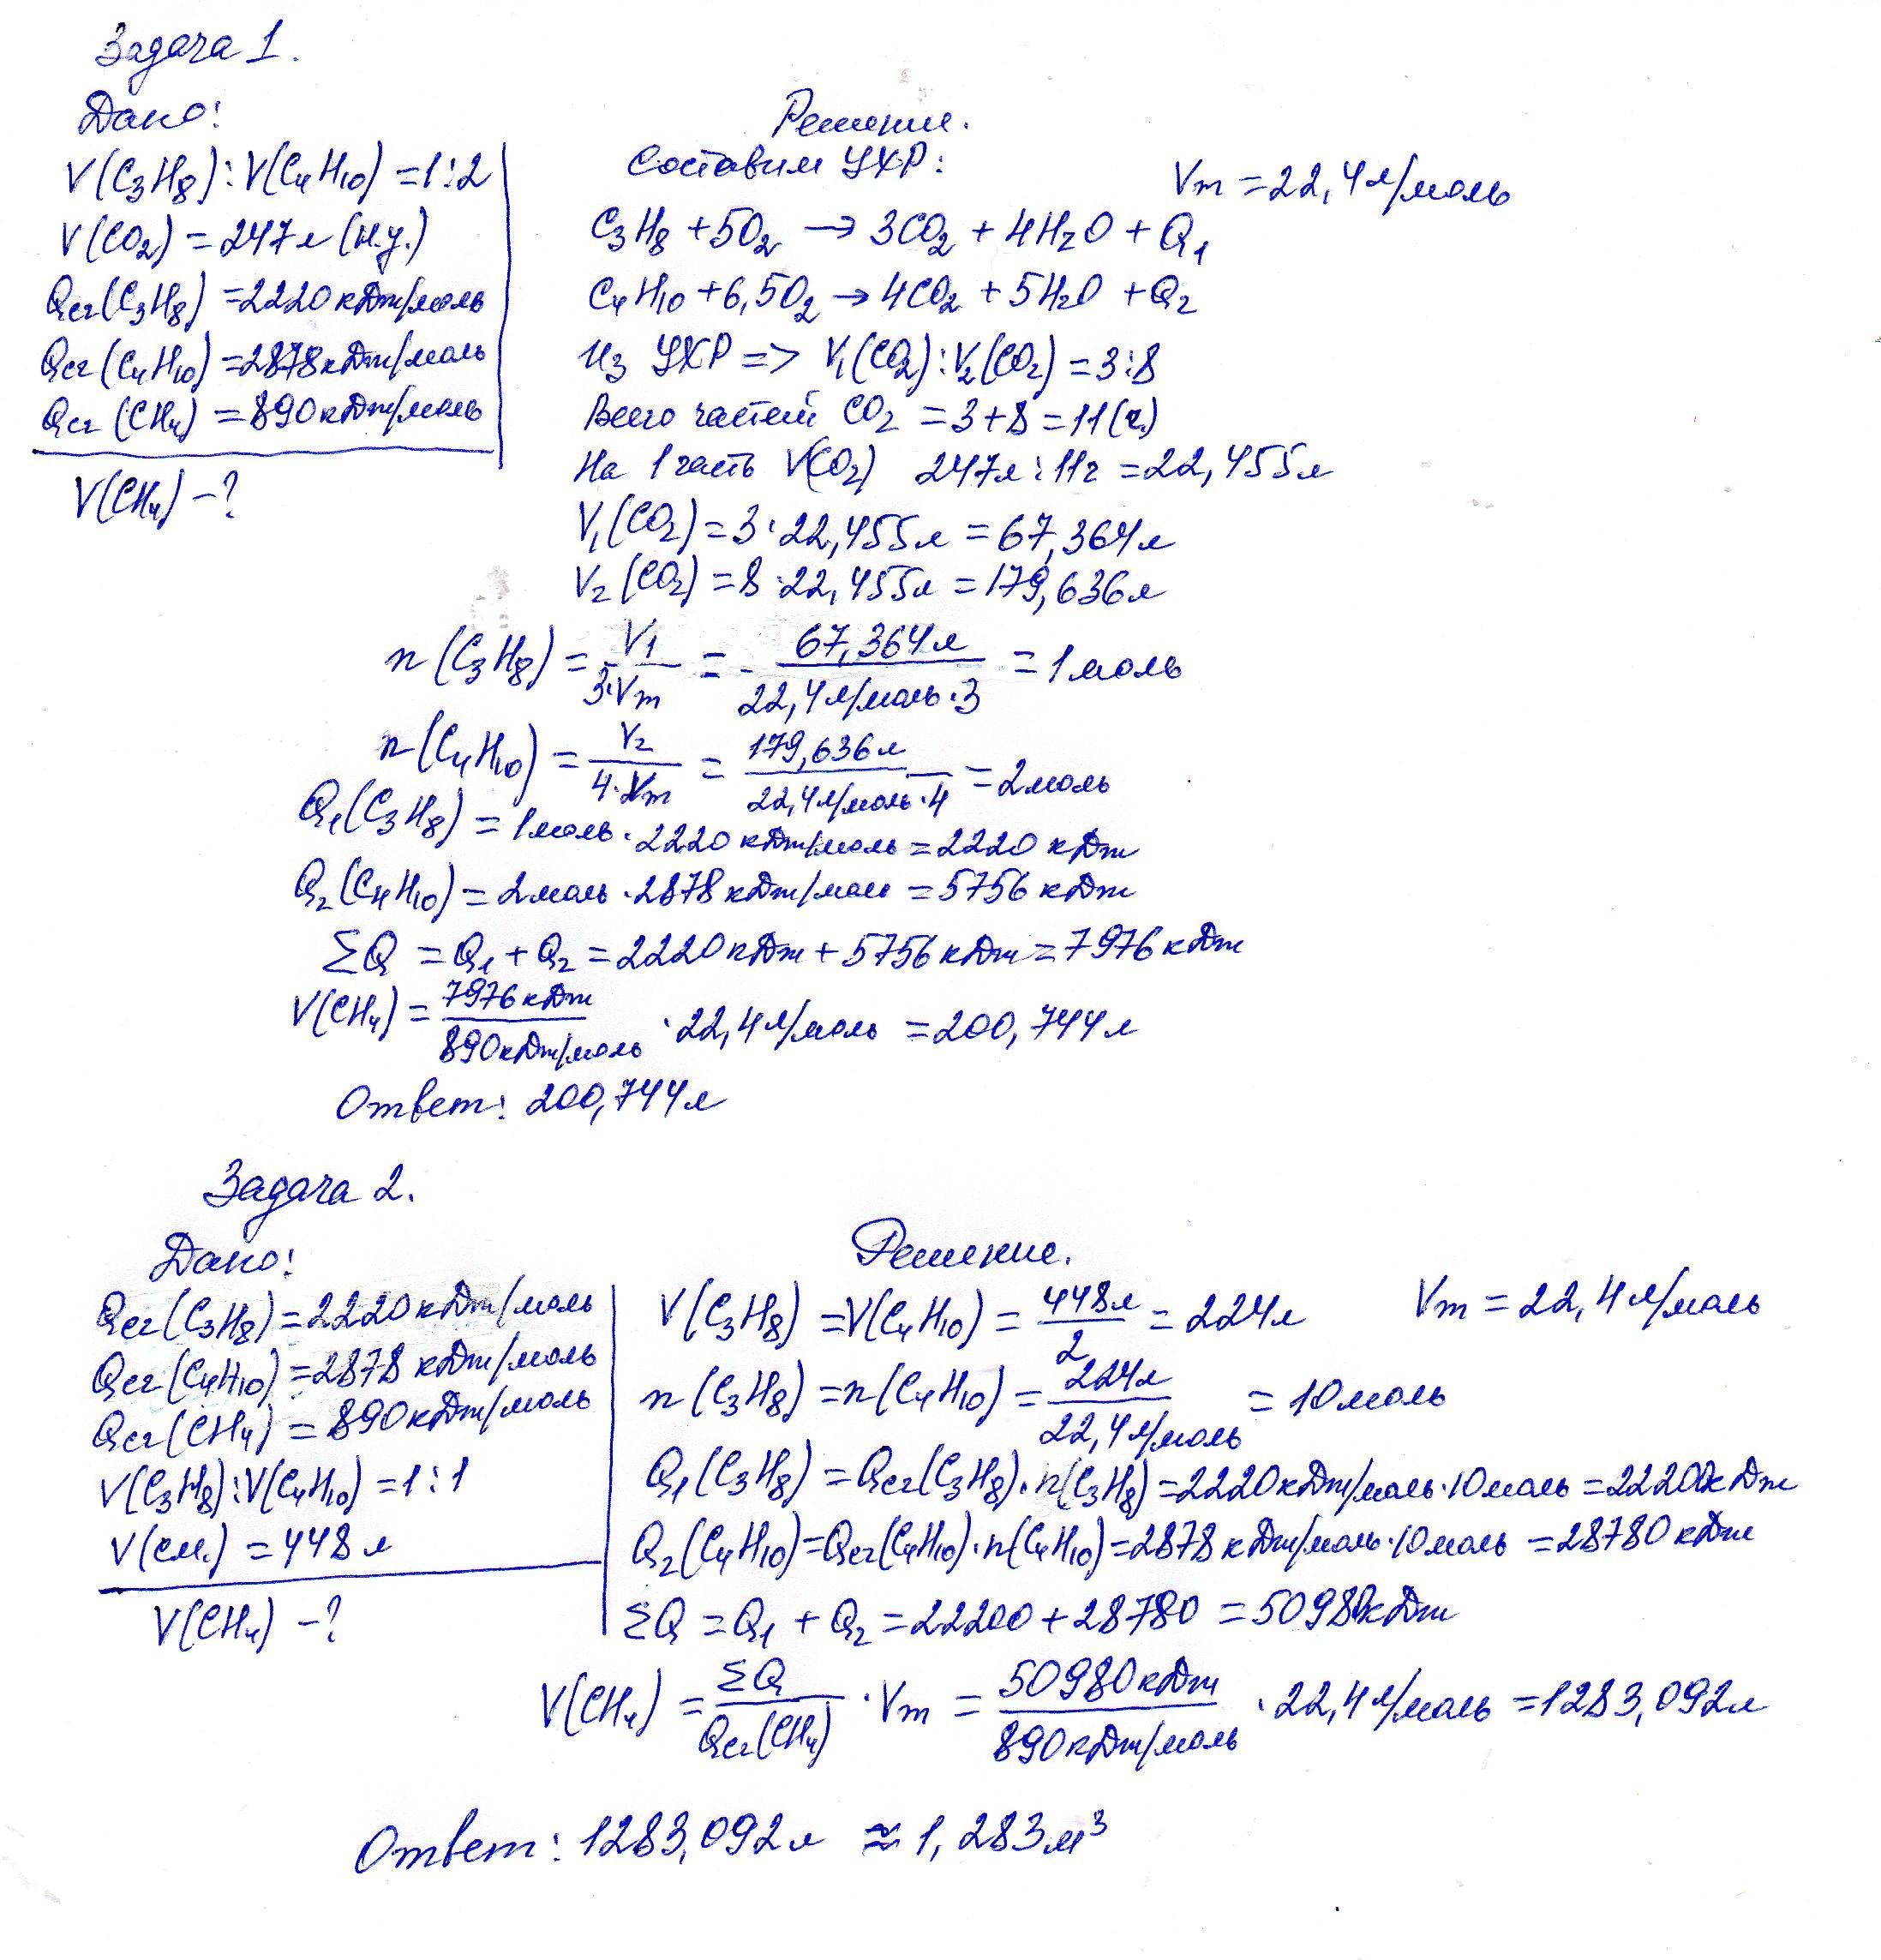 Задача 1.
Дано:
V(C₃H₈):V(C₄H₁₀) = 1:2
V(CO₂) = 247л (н.у.)
Qсг(C₃H₈) = 2220 кДж/моль
Qсг(C₄H₁₀) = 2878 кДж/моль
Qсг(CH₄) = 890 кДж/моль
V(CH₄) - ?
Решение.
Составим УХР:
Vm = 22,4 л/моль
C₃H₈ + 5O₂ → 3CO₂ + 4H₂O + Q₁
C₄H₁₀ + 6,5O₂ → 4CO₂ + 5H₂O + Q₂
Из УХР => V₁(CO₂):V₂(CO₂) = 3:8
Всего частей CO₂ = 3+8 = 11(ч.)
На 1 часть V(CO₂) 247л : 11ч = 22,455л
V₁(CO₂) = 3·22,455л = 67,364л
V₂(CO₂) = 8·22,455л = 179,636л
n(C₃H₈) = V₁/(3·Vm) = 67,364л/(22,4л/моль·3) = 1моль
n(C₄H₁₀) = V₂/(4·Vm) = 179,636л/(22,4л/моль·4) = 2моль
Q₁(C₃H₈) = 1моль·2220 кДж/моль = 2220 кДж
Q₂(C₄H₁₀) = 2моль·2878 кДж/моль = 5756 кДж
ΣQ = Q₁ + Q₂ = 2220кДж + 5756кДж = 7976кДж
V(CH₄) = 7976кДж/890кДж/моль · 22,4л/моль = 200,744л
Ответ: 200,744л
Задача 2.
Дано:
Qсг(C₃H₈) = 2220 кДж/моль
Qсг(C₄H₁₀) = 2878 кДж/моль
Qсг(CH₄) = 890 кДж/моль
V(C₃H₈):V(C₄H₁₀) = 1:1
V(см.) = 448 л
V(CH₄) - ?
Решение.
V(C₃H₈) = V(C₄H₁₀) = 448л/2 = 224л
Vm = 22,4 л/моль
n(C₃H₈) = n(C₄H₁₀) = 224л/22,4л/моль = 10моль
Q₁(C₃H₈) = Qсг(C₃H₈)·n(C₃H₈) = 2220кДж/моль·10моль = 22200кДж
Q₂(C₄H₁₀) = Qсг(C₄H₁₀)·n(C₄H₁₀) = 2878 кДж/моль·10моль = 28780 кДж
ΣQ = Q₁ + Q₂ = 22200 + 28780 = 50980кДж
V(CH₄) = ΣQ/Qсг(CH₄) · Vm = 50980кДж/890кДж/моль · 22,4л/моль = 1283,092л
Ответ: 1283,092л ≈ 1,283м³